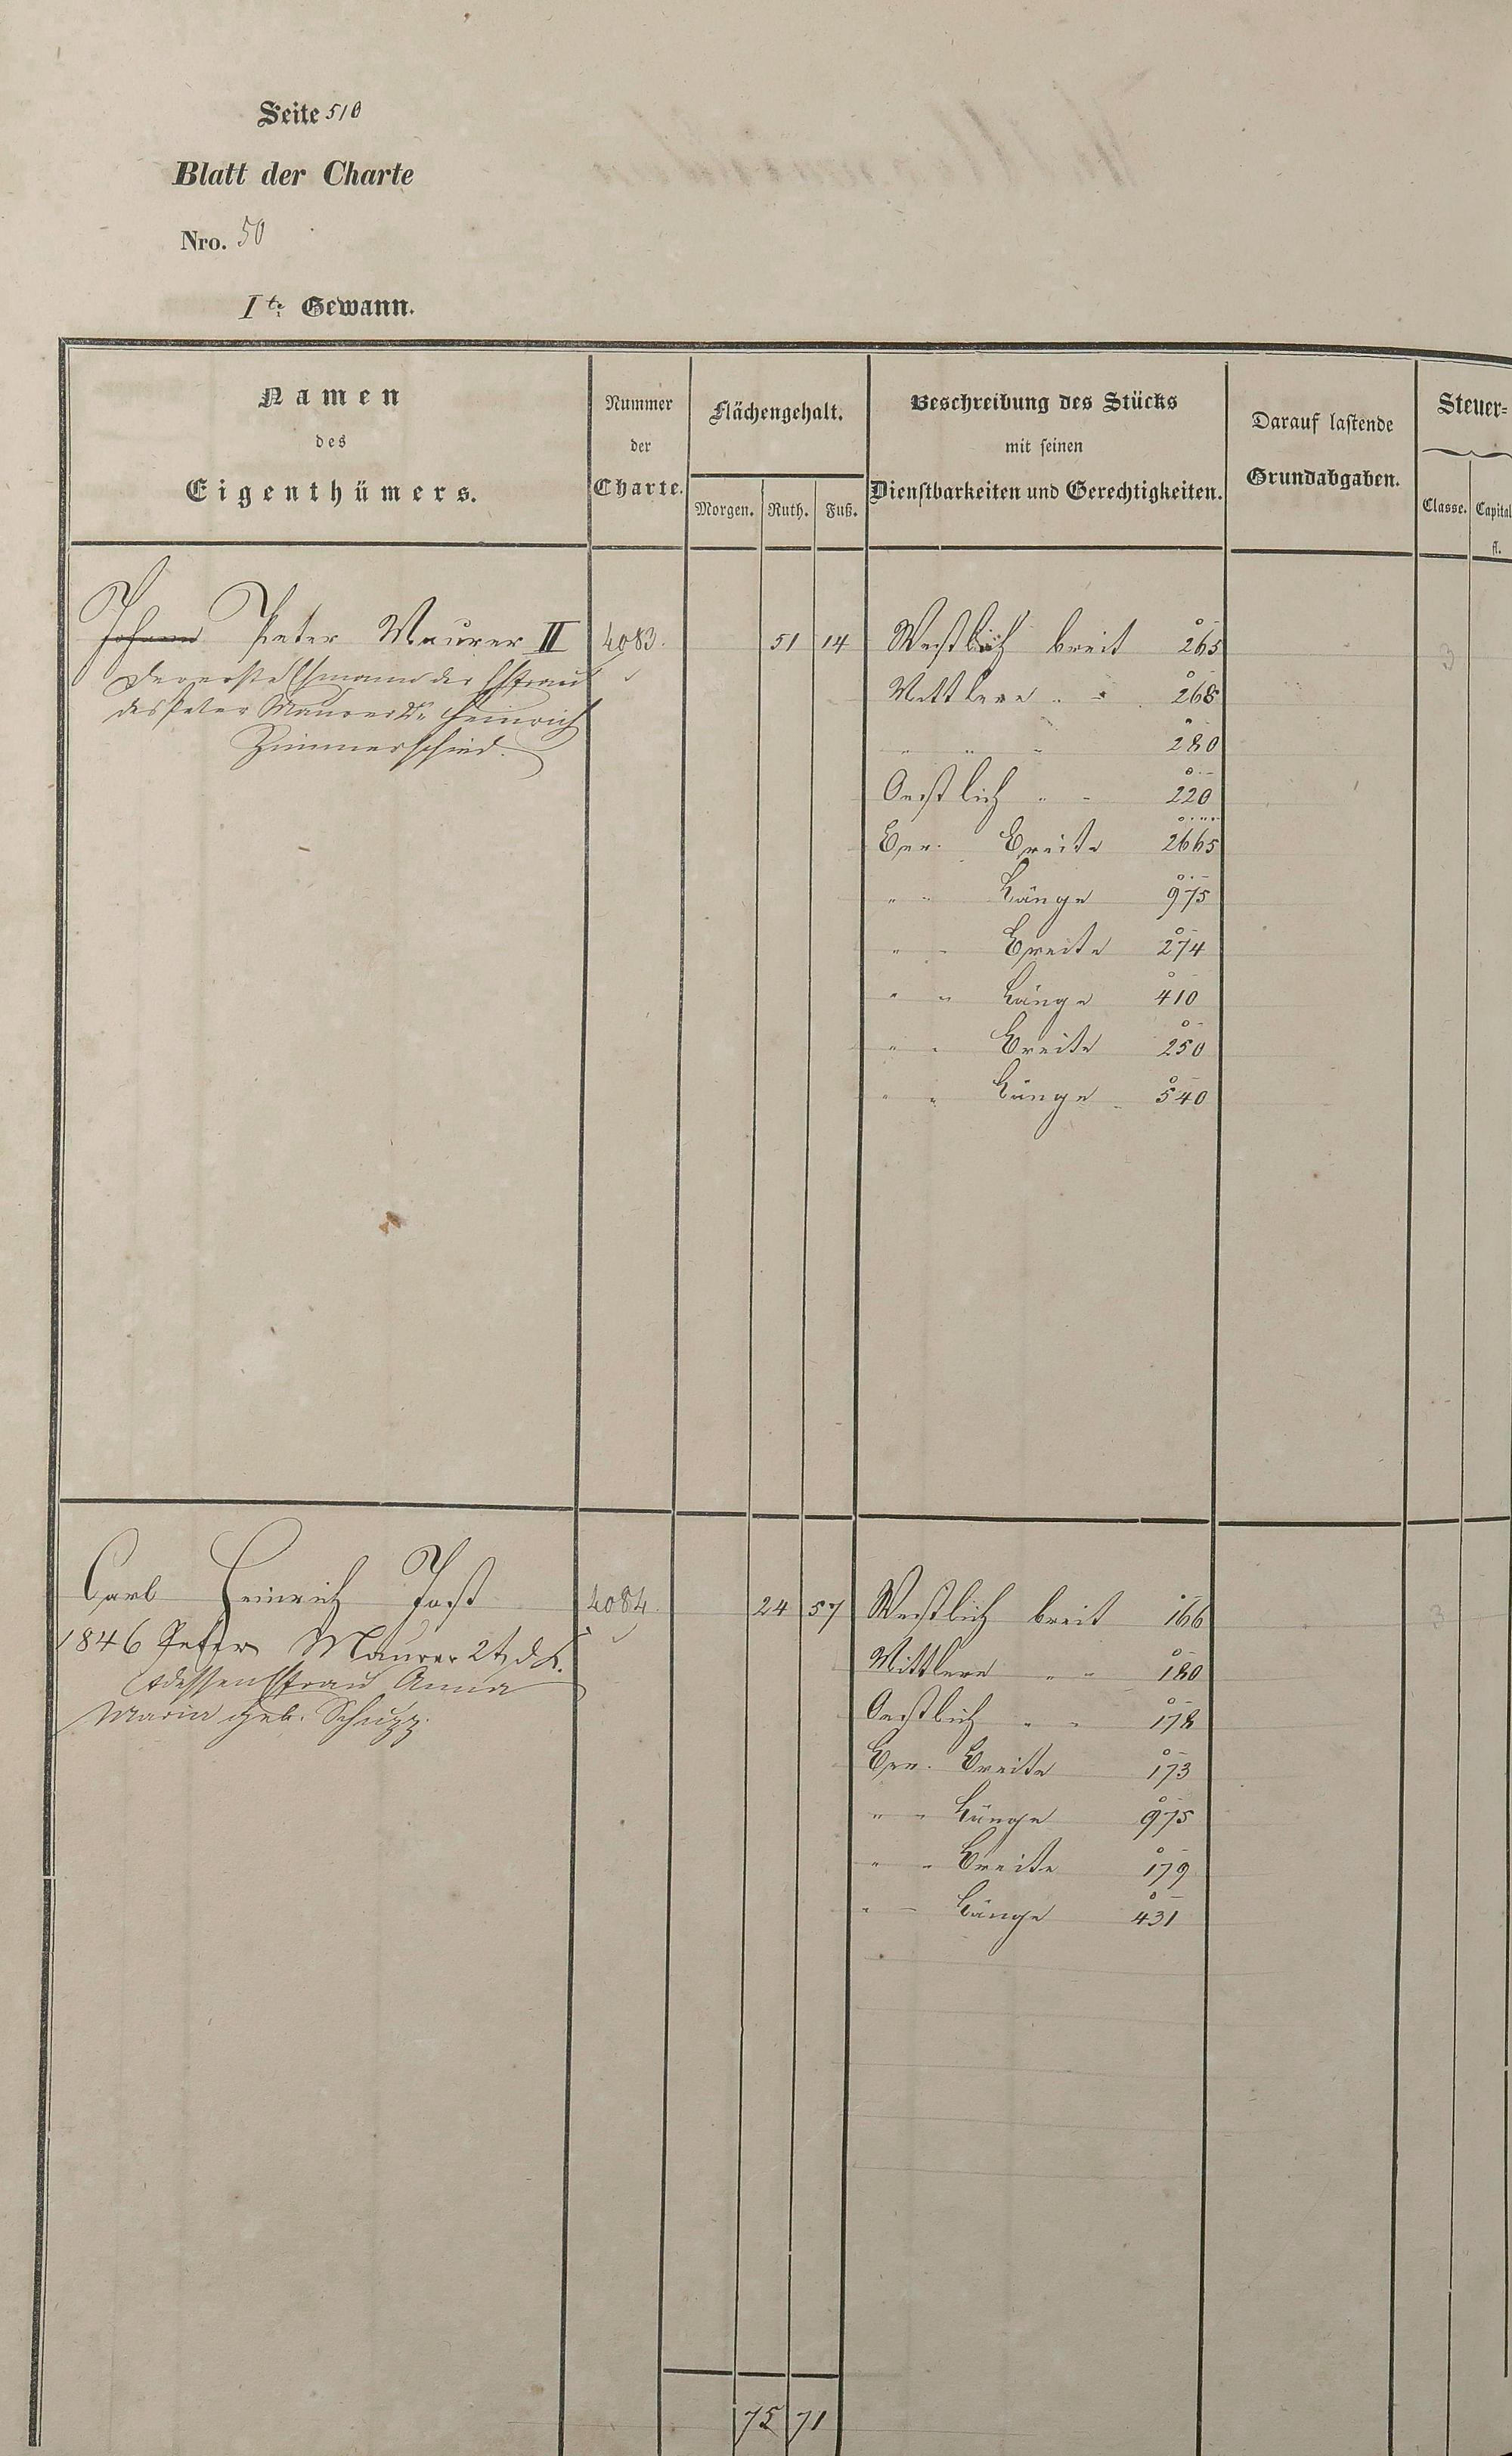 Seite 510
Blatt der Charte
Nro. 50
Ite Gewann.
Namen
des
Eigenthümers.
Nummer
der
Charte.
Flächengehalt.
Morgen. Ruth. Fuß.
Beschreibung des Stücks
mit seinen
Dienstbarkeiten und Gerechtigkeiten.
Darauf lastende
Grundabgaben.
Steuer-
Classe. Capital
fl.
Johann Peter Maurer II 4083. 51 14 Westlich breit 265 3
der erste Ehmann der Ehfrau
des Peter Maurer 2r Heinrich
Zimmerschied
Mittlere " " 268
" " " 280
Oestlich " " 220
Ger. Breite 2665
" " Länge 975
" " Breite 274
" " Länge 410
" " Breite 250
" " Länge 540
Carl Heinrich Jost 4084. 24 57 Westlich breit 166 3
1846 Peter Maurer 2t
dessen Ehfrau Anna
Maria geb. Schupp.
Mittlere " " 180
Oestlich " " 178
Ger. Breite 173
" " Länge 975
" " Breite 179
" " Länge 431
75 71